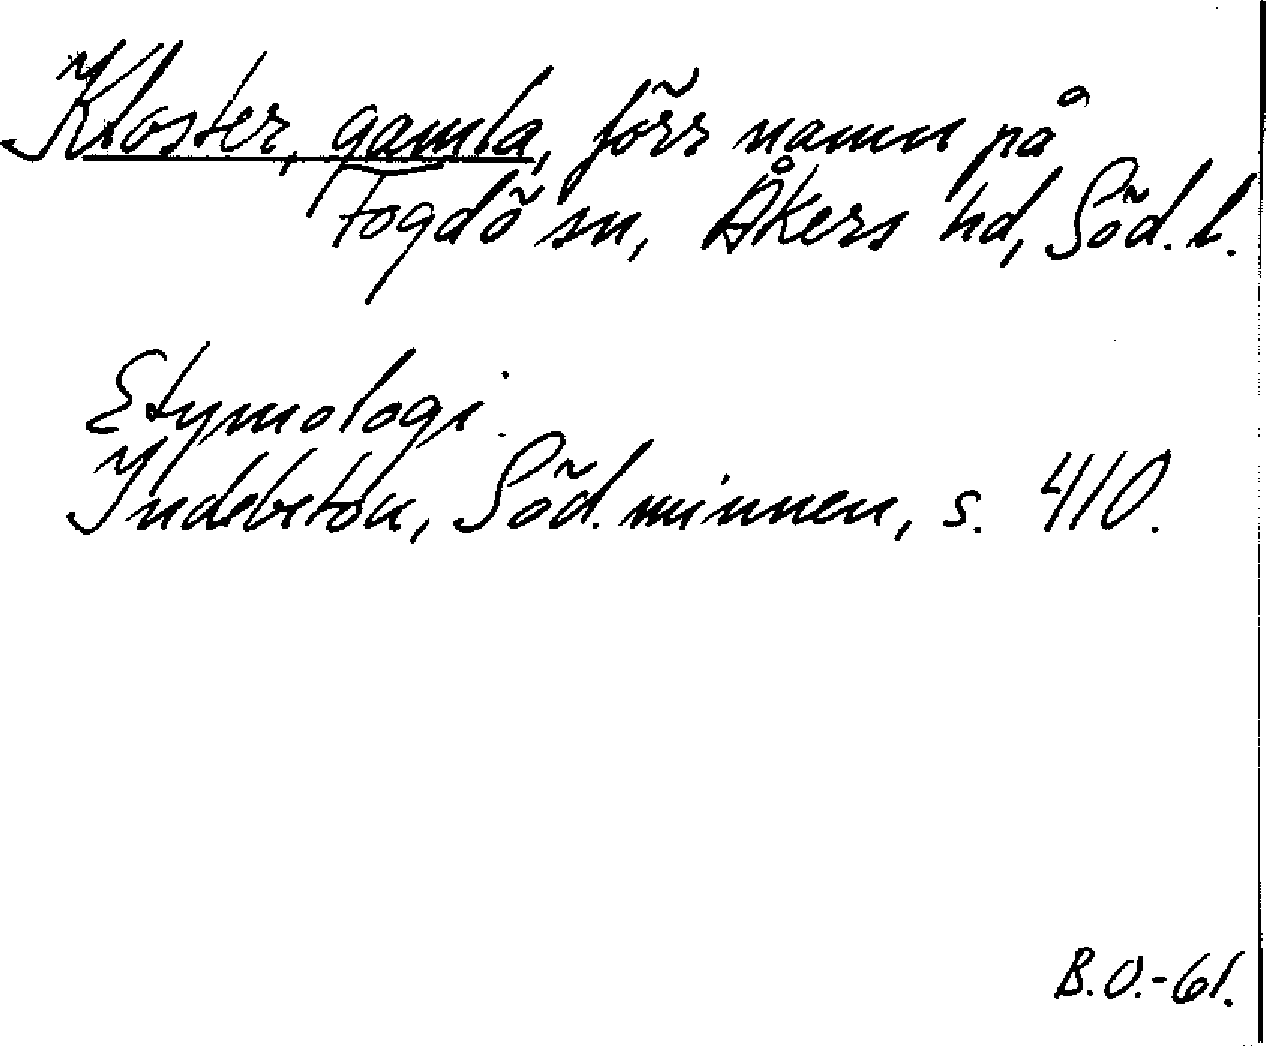 Kloster, gamla, förr namn på
Fogdö sn, Åkers hd, Söd. l.
Etymologi.
Indebetou, Söd. minnen, s. 410.
B.O.-61.